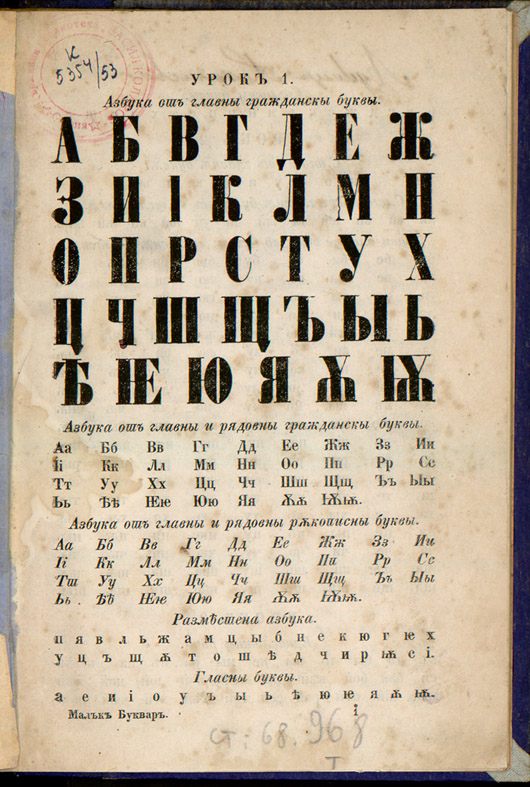 К
5354/53
УРОКЪ 1.
Азбука отъ главны гражданскы буквы.
А Б В Г Д Е Ж
З И І К Л М Н
О П Р С Т У Х
Ц Ч Ш Щ Ъ Ы Ь
Ѣ Ѥ Ю Я Ѫ Ѭ
Азбука отъ главны и рядовны гражданскы буквы.
Аа Бб Вв Гг Дд Ее Жж Зз Ии
Іі Кк Лл Мм Нн Оо Пп Рр Сс
Тт Уу Хх Цц Чч Шш Щщ Ъъ Ыы
Ьь Ѣѣ Ѥѥ Юю Яя Ѫѫ Ѭѭ.
Азбука отъ главны и рядовны рѫкописны буквы.
Аа Бб Вв Гг Дд Ее Жж Зз Ии
Іі Кк Лл Мм Нн Оо Пп Рр Сс
Тт Уу Хх Цц Чч Шш Щщ Ъъ Ыы
Ьь. Ѣѣ Ѥѥ Юю Яя Ѫѫ Ѭѭ.
Размѣстена азбука.
п я в л ь ж а м ц ы б н е к ю г ѥ х
у ц ъ щ ѫ т о ш ѣ д ч и р ѭ с і.
Гласны буквы.
а е и і о у ъ ы ь ѣ ю ѥ я ѫ ѭ.
Малъкъ Букваръ. 1
ст: 68. 968